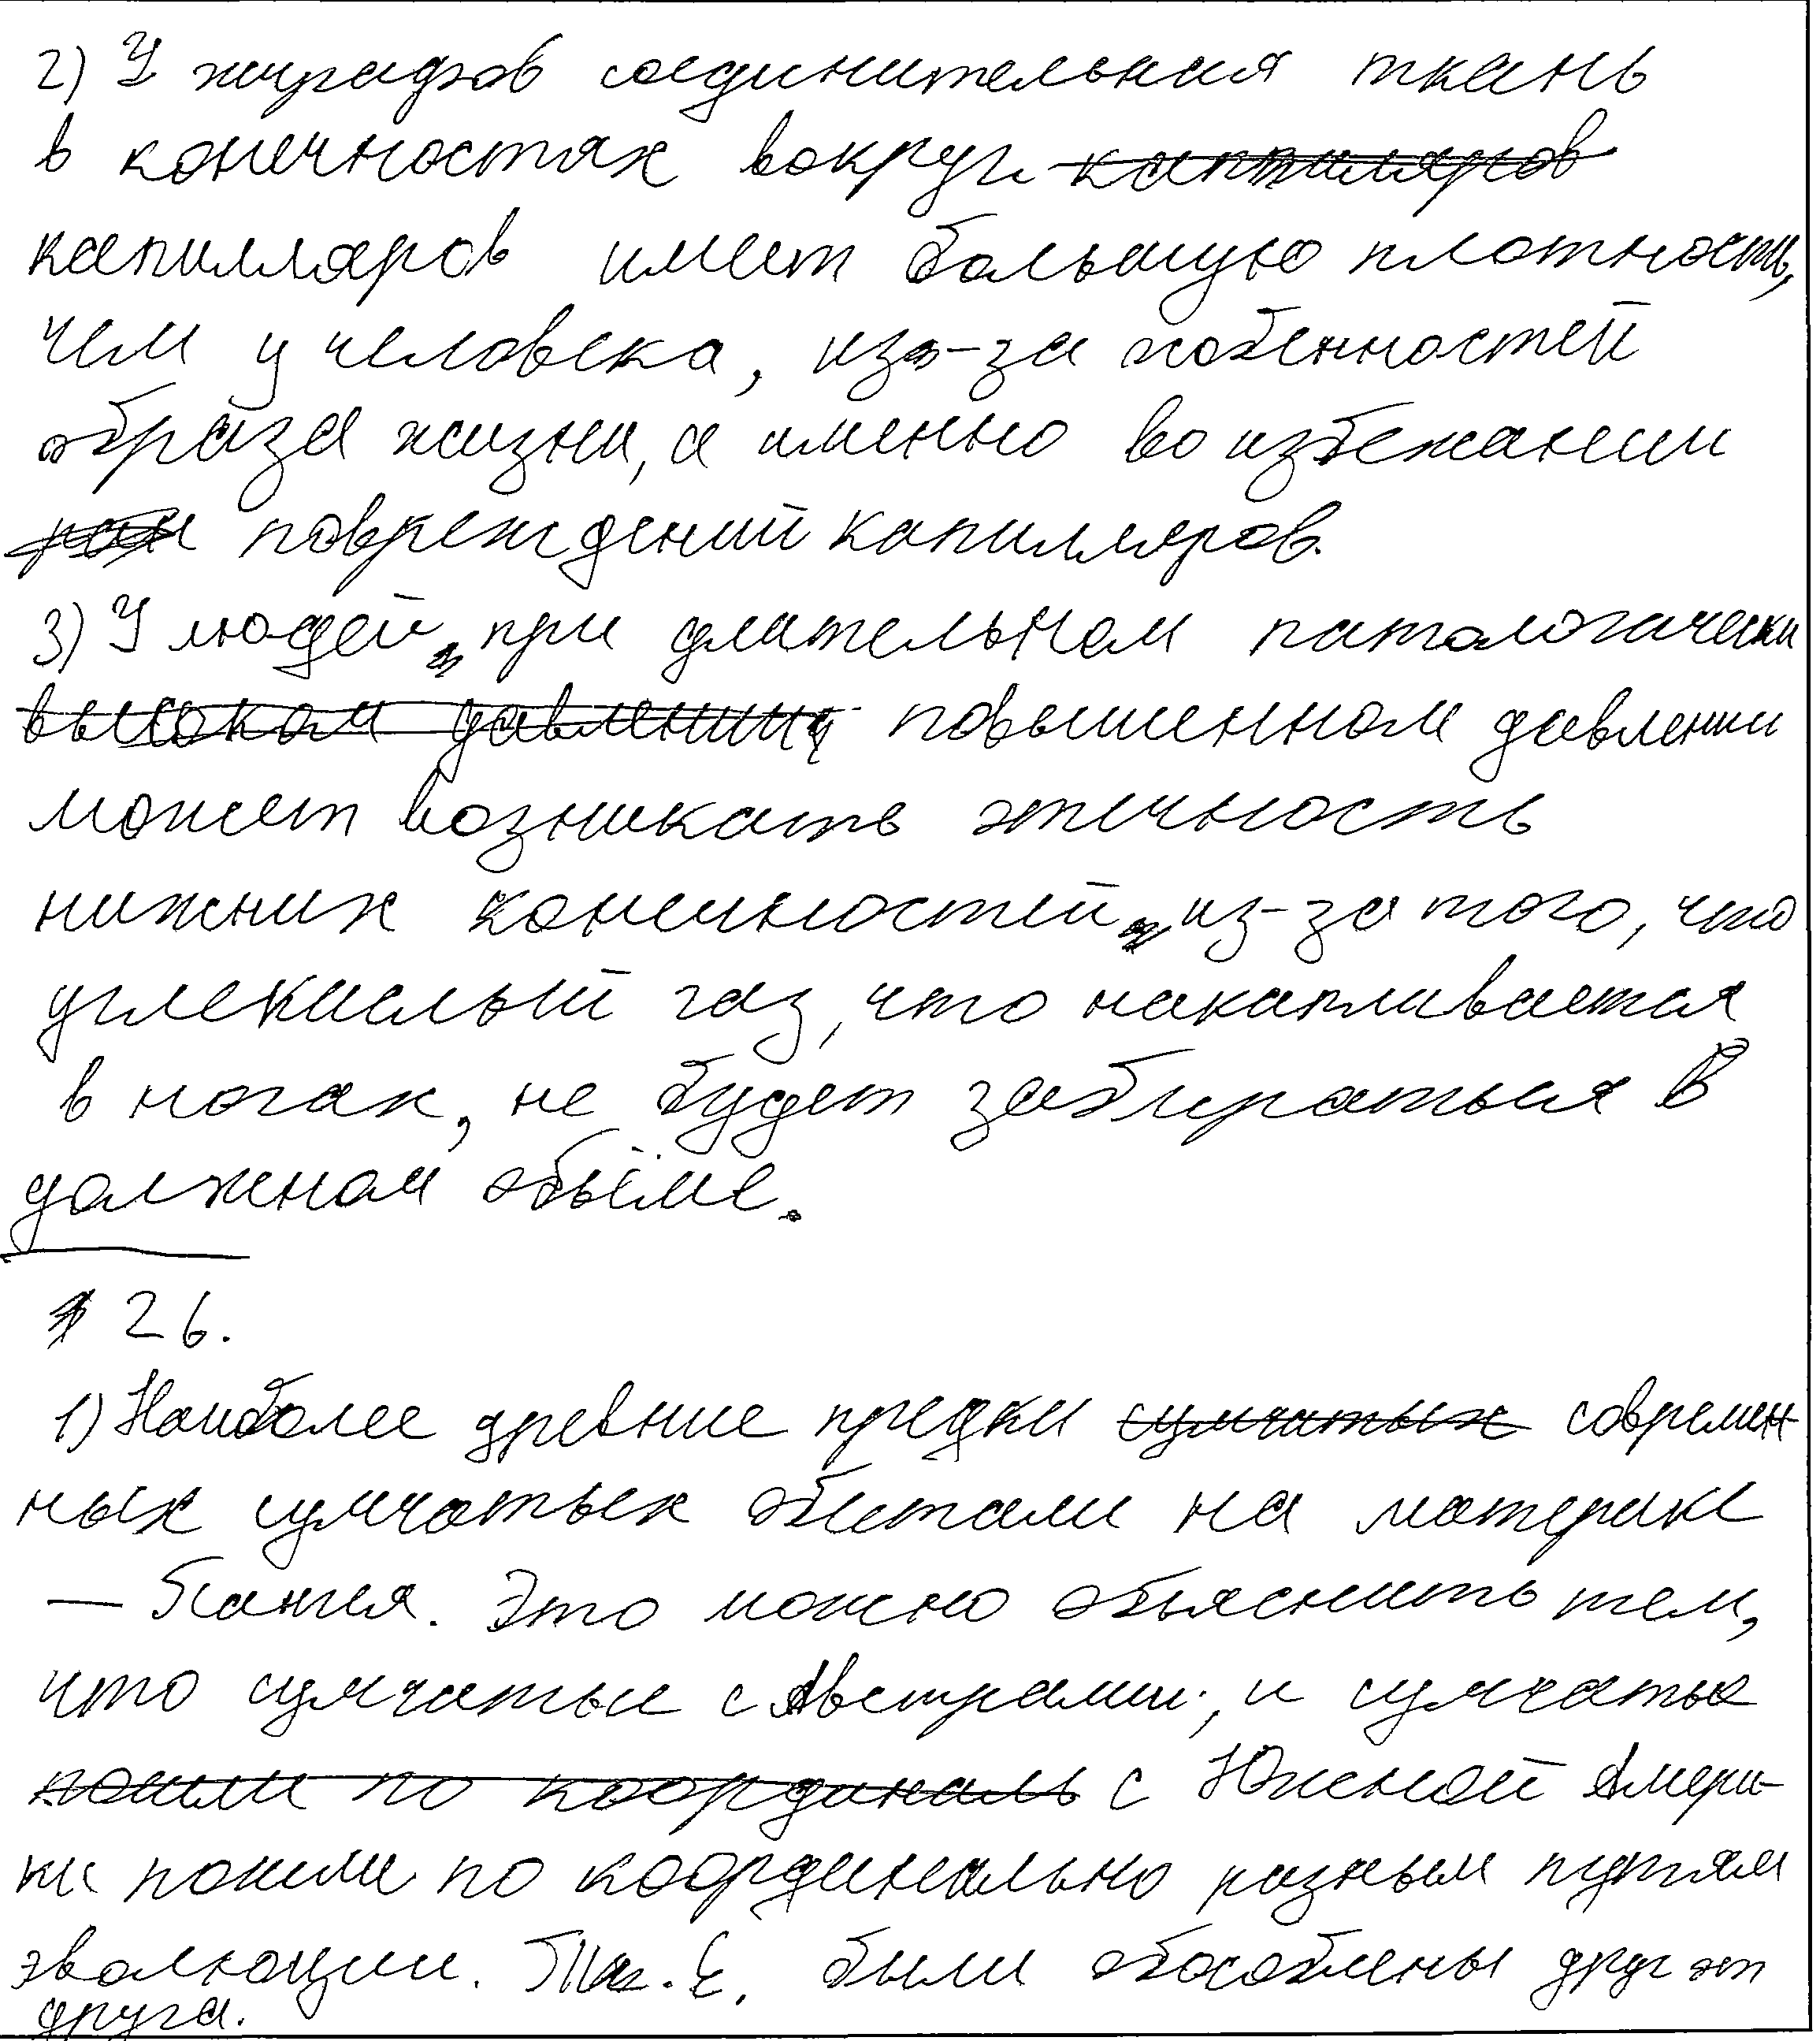 2) У жирафов соединительная ткань
в конечностях вокруг капилляров
капилляров имеет большую плотность,
чем у человека, из-за особенностей
образа жизни, а именно во избежании
повреждений капилляров.
3) У людей, при длительном патологически
высоком давлении, повышенном давлении
может возникать отечность
нижних конечностей, из-за того, что
углекислый газ, что накапливается
в ногах, не будет забираться в
должном объёме.
26.
1) Наиболее древние предки сумчатых современ
ных сумчатых обитали на материке
— Пангея. Это можно объяснить тем,
что сумчатые с Австралии, и сумчатые
пошли по координаль с Южной Амери-
ки пошли по координально разным путям
эволюции. Т.е. были обособлены друг от
друга.